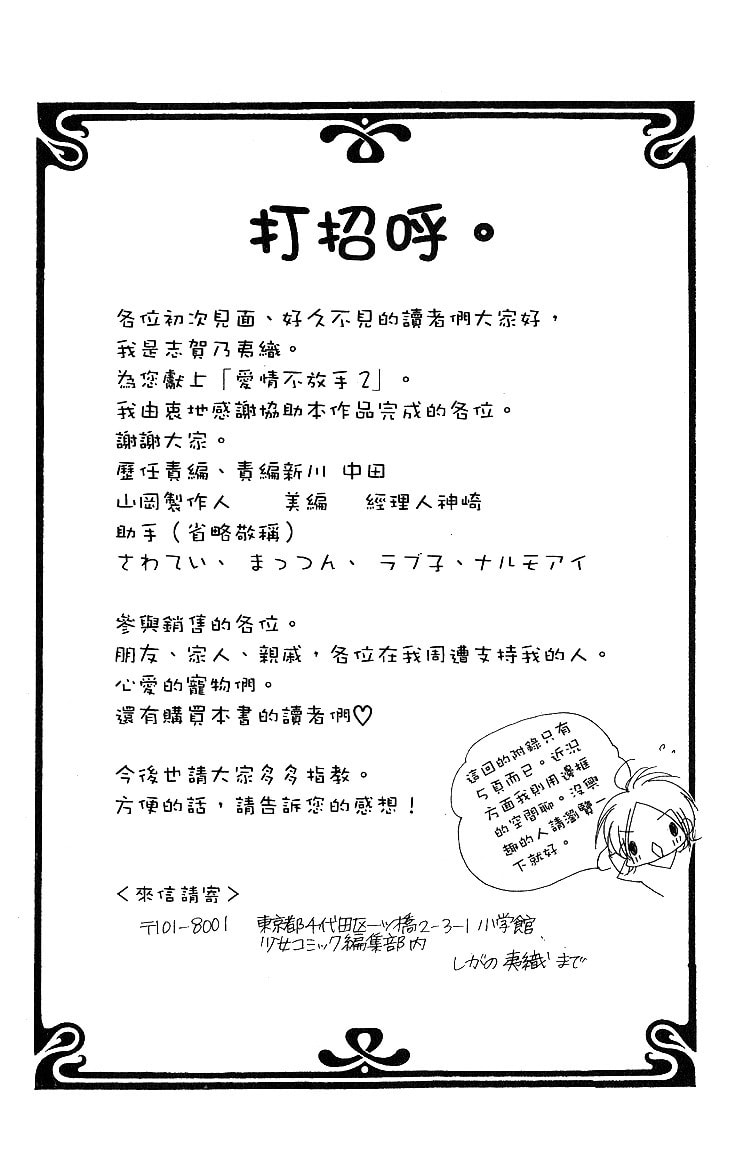 打招呼。
各位初次見面、好久不見的讀者們大家好，
我是志賀乃夷織。
為您獻上「愛情不放手2」。
我由衷地感謝協助本作品完成的各位。
謝謝大家。
歷任責編、責編新川 中田
山岡製作人 美編 經理人神崎
助手（省略敬稱）
さわてい、 まっつん、 ラブ子、ナルモアイ
參與銷售的各位。
朋友、家人、親戚，各位在我周遭支持我的人。
心愛的寵物們。
還有購買本書的讀者們♡
今後也請大家多多指教。
方便的話，請告訴您的感想！
這回的附錄只有
5頁而已。近況
方面我則用邊框
的空間聊。沒興
趣的人請瀏覽
下就好。
＜來信請寄＞
〒101-8001 東京都千代田区一ツ橋2-3-1 小学館
少女コミック編集部内
しがの夷織まで